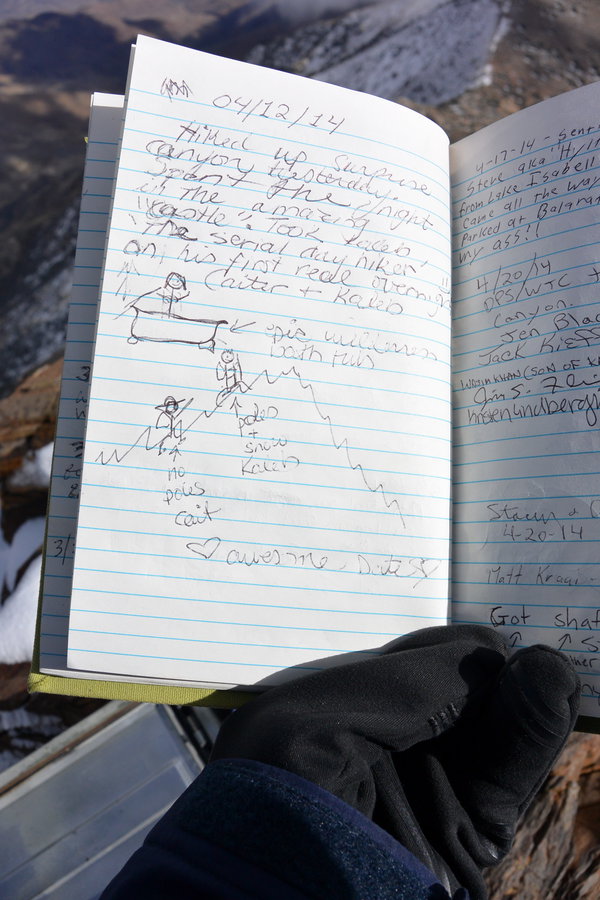 04/12/14
Hiked up Surprise
canyon yesterday.
Spent the night
in the amazing
"castle". Took Kaleb,
"the serial day hiker,"
on his first overnight
Caiter + Kaleb
epic wilderness
bath tub
poles
+
snow
Kaleb
no
poles
cait
♡ awesome
4-17-14 - sent
Steve aka "Hy
from Lake Isabell
came all the way
Parked at Balara
my ass!!
4/20/14
DPS/WTC +
Canyon.
Jen Bla
Jack Kie
(SON OF
4-20-14
Matt
Got shaf